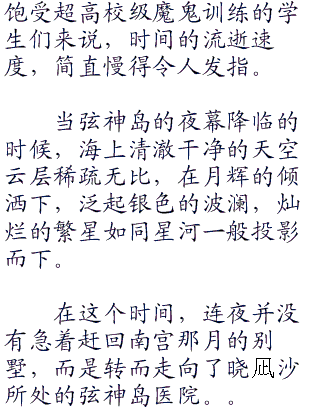 饱受超高校级魔鬼训练的学
生们来说，时间的流逝速
度，简直慢得令人发指。
当弦神岛的夜幕降临的
时候，海上清澈干净的天空
云层稀疏无比，在月辉的倾
洒下，泛起银色的波澜，灿
烂的繁星如同星河一般投影
而下。
在这个时间，连夜并没
有急着赶回南宫那月的别
墅，而是转而走向了晓凪沙
所处的弦神岛医院。。